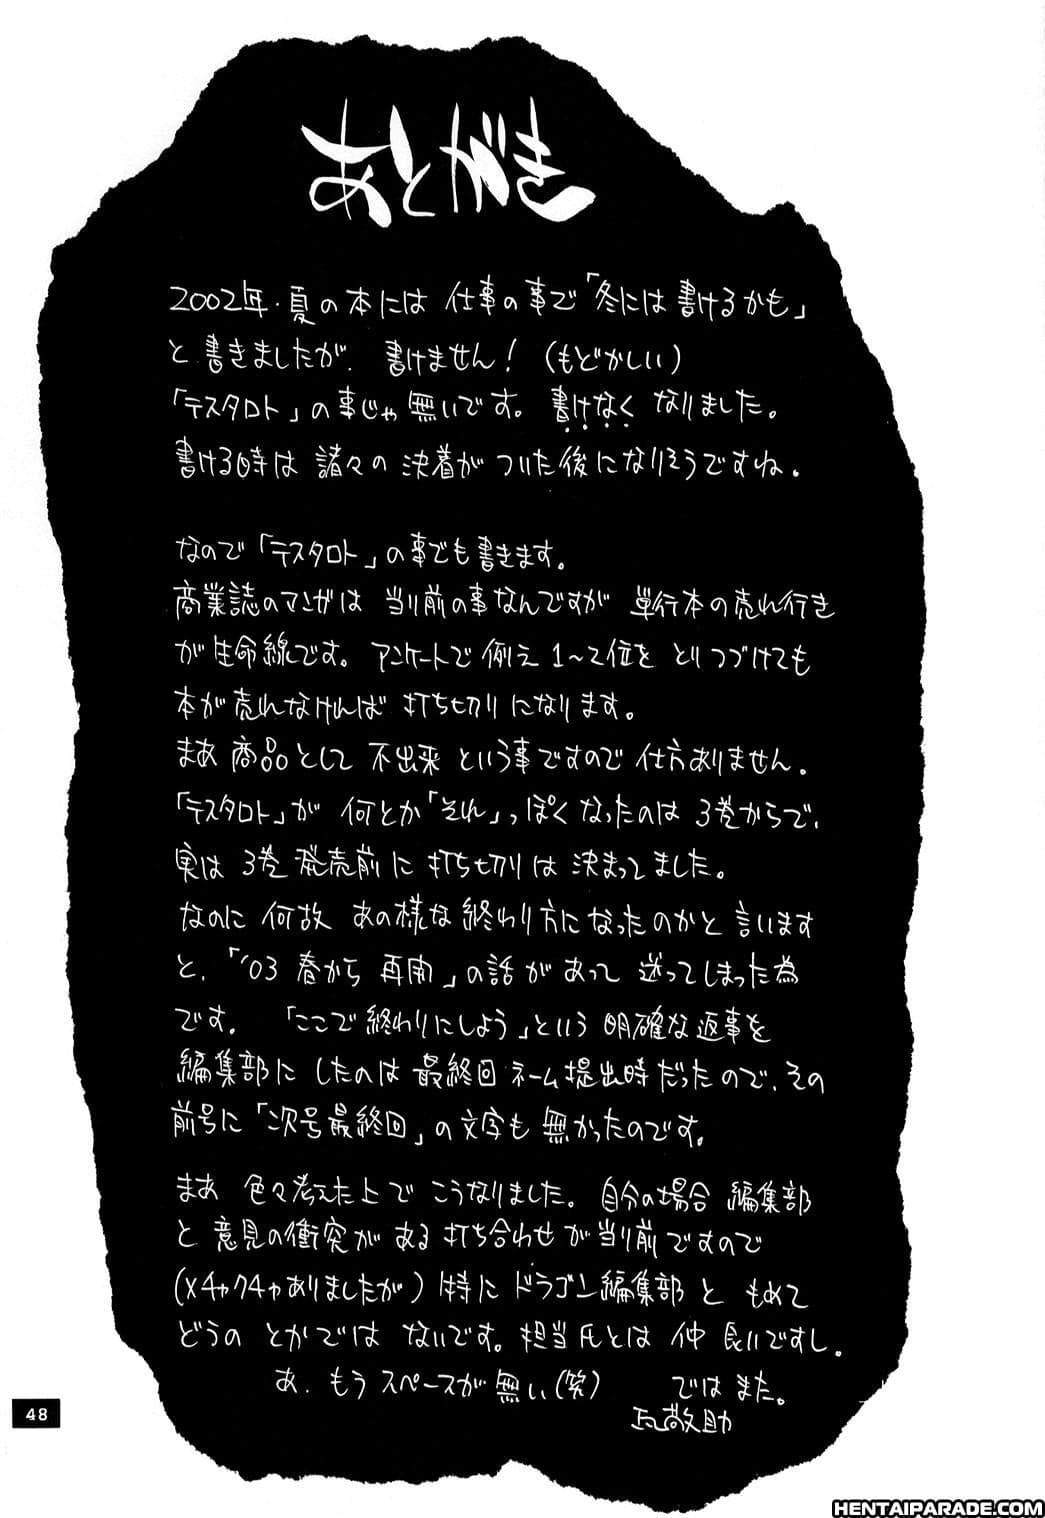 あとがき
2002年・夏の本には 仕事の事で「冬には書けるかも」
と書きましたが、書けません！（もどかしい）
「テスタロト」の事じゃ無いです。書けなくなりました。
書ける時は 諸々の決着がついた後になりそうですね。
なので「テスタロト」の事でも書きます。
商業誌のマンガは 当り前の事なんですが 単行本の売れ行き
が生命線です。アンケートで例え1〜2位を とりつづけても
本が売れなければ 打ち切りになります。
まあ商品として 不出来 という事ですので 仕方ありません。
「テスタロト」が 何とか「それ」っぽくなったのは 3巻からで、
実は 3巻発売前に 打ち切りは 決まってました。
なのに 何故 あの様な終わり方になったのかと言います
と、「'03 春から 再開」の話があって 迷ってしまった為
です。「ここで終わりにしよう」という 明確な返事を
編集部に したのは 最終回ネーム提出時だったので、その
前号に「次号最終回」の文字も 無かったのです。
まあ 色々考えた上で こうなりました。自分の場合 編集部
と 意見の衝突が ある打ち合わせが当り前ですので
（メチャクチャありましたが）特に ドラゴン編集部と もめて
どうの とかでは ないです。担当氏とは 仲 良いですし。
あ、もう スペースが無い（笑） ではまた。
敬助
48
HENTAIPARADE.COM